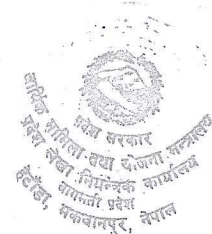 प्रदेश सरकार
आर्थिक मामिला तथा योजना मन्त्रालय
प्रदेश लेखा नियन्त्रक कार्यालय
बागमती प्रदेश
हेटौंडा,
मकवानपुर, नेपाल